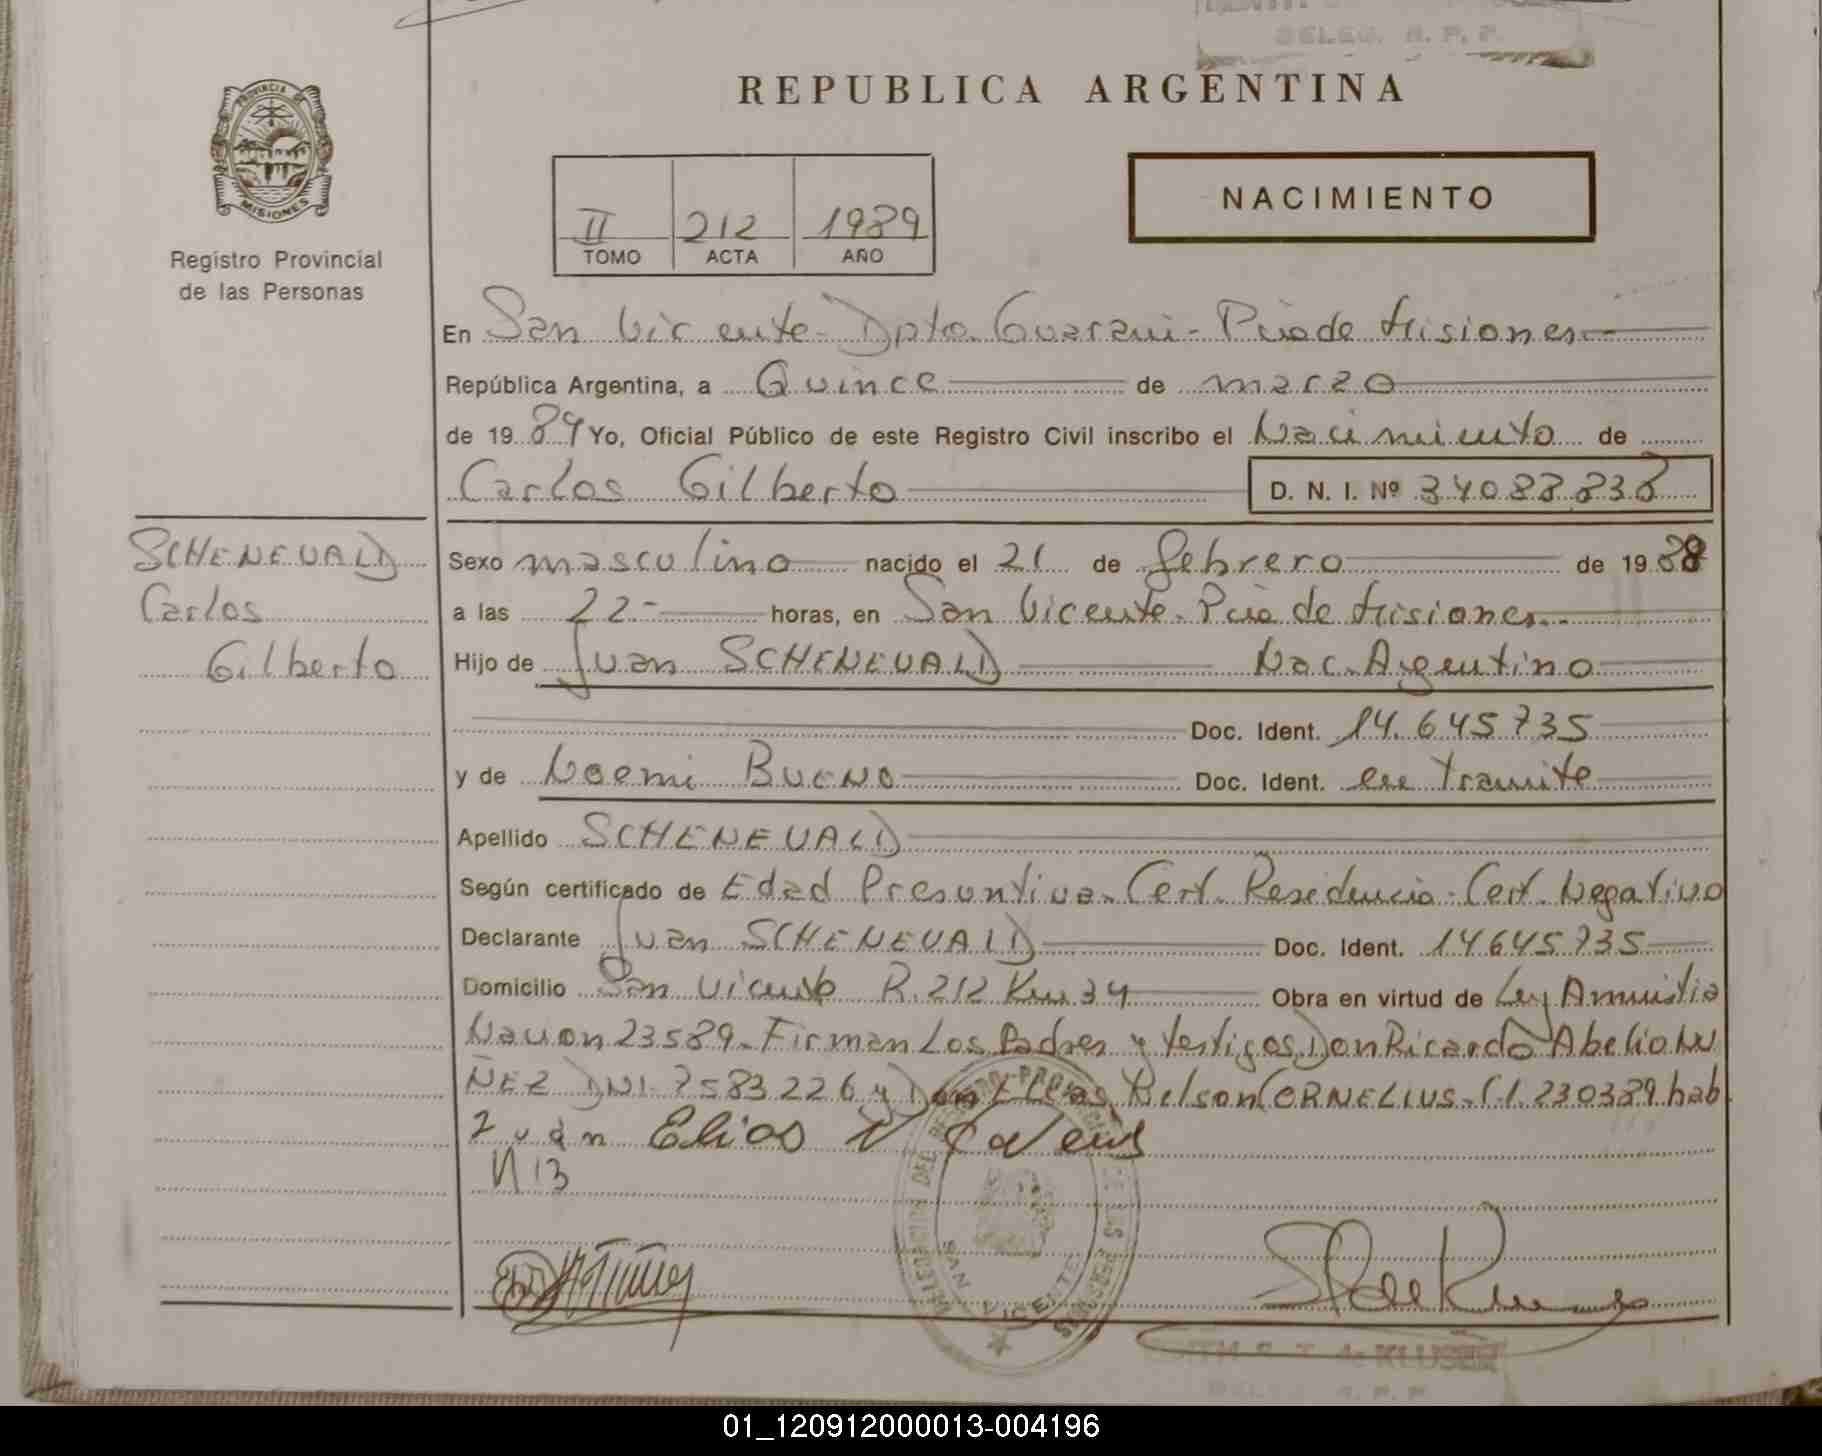 DELEG. R. P. P.
REPUBLICA ARGENTINA
PROVINCIA DE
MISIONES
Registro Provincial
de las Personas
II 212 1989
TOMO ACTA AÑO
NACIMIENTO
En San Vicente - Dpto. Guarani - Pcia de Misiones
República Argentina, a Quince de marzo
de 1989 Yo, Oficial Público de este Registro Civil inscribo el Nacimiento de
Carlos Gilberto D. N. I. Nº
SCHENEVALD
Carlos
Gilberto
Sexo masculino nacido el 21 de febrero de 1988
a las 22- horas, en San Vicente - Pcia de Misiones
Hijo de Juan SCHENEVALD Nac. Argentino
Doc. Ident. 14.645735
y de Noemi BUENO Doc. Ident. en Tramite
Apellido SCHENEVALD
Según certificado de Edad Presuntiva - Cert. Residencia - Cert. Negativo
Declarante Juan SCHENEVALD Doc. Ident. 14645735
Domicilio San Vicente R. 212 Km 34 Obra en virtud de Ley Amnistia
Nacion 23589 - Firman Los Padres y testigos Don Ricardo Abelio NU
ÑEZ DNI 7583226 y Don Elias Nelson CORNELIUS - C.I. 230389 hab
Juan Elias N
N 13
DELEGACION DEL REGISTRO PROVINCIAL DE LAS PERSONAS
SAN VICENTE
T. de KLUSER
DELEG. R. P. P.
01_120912000013-004196